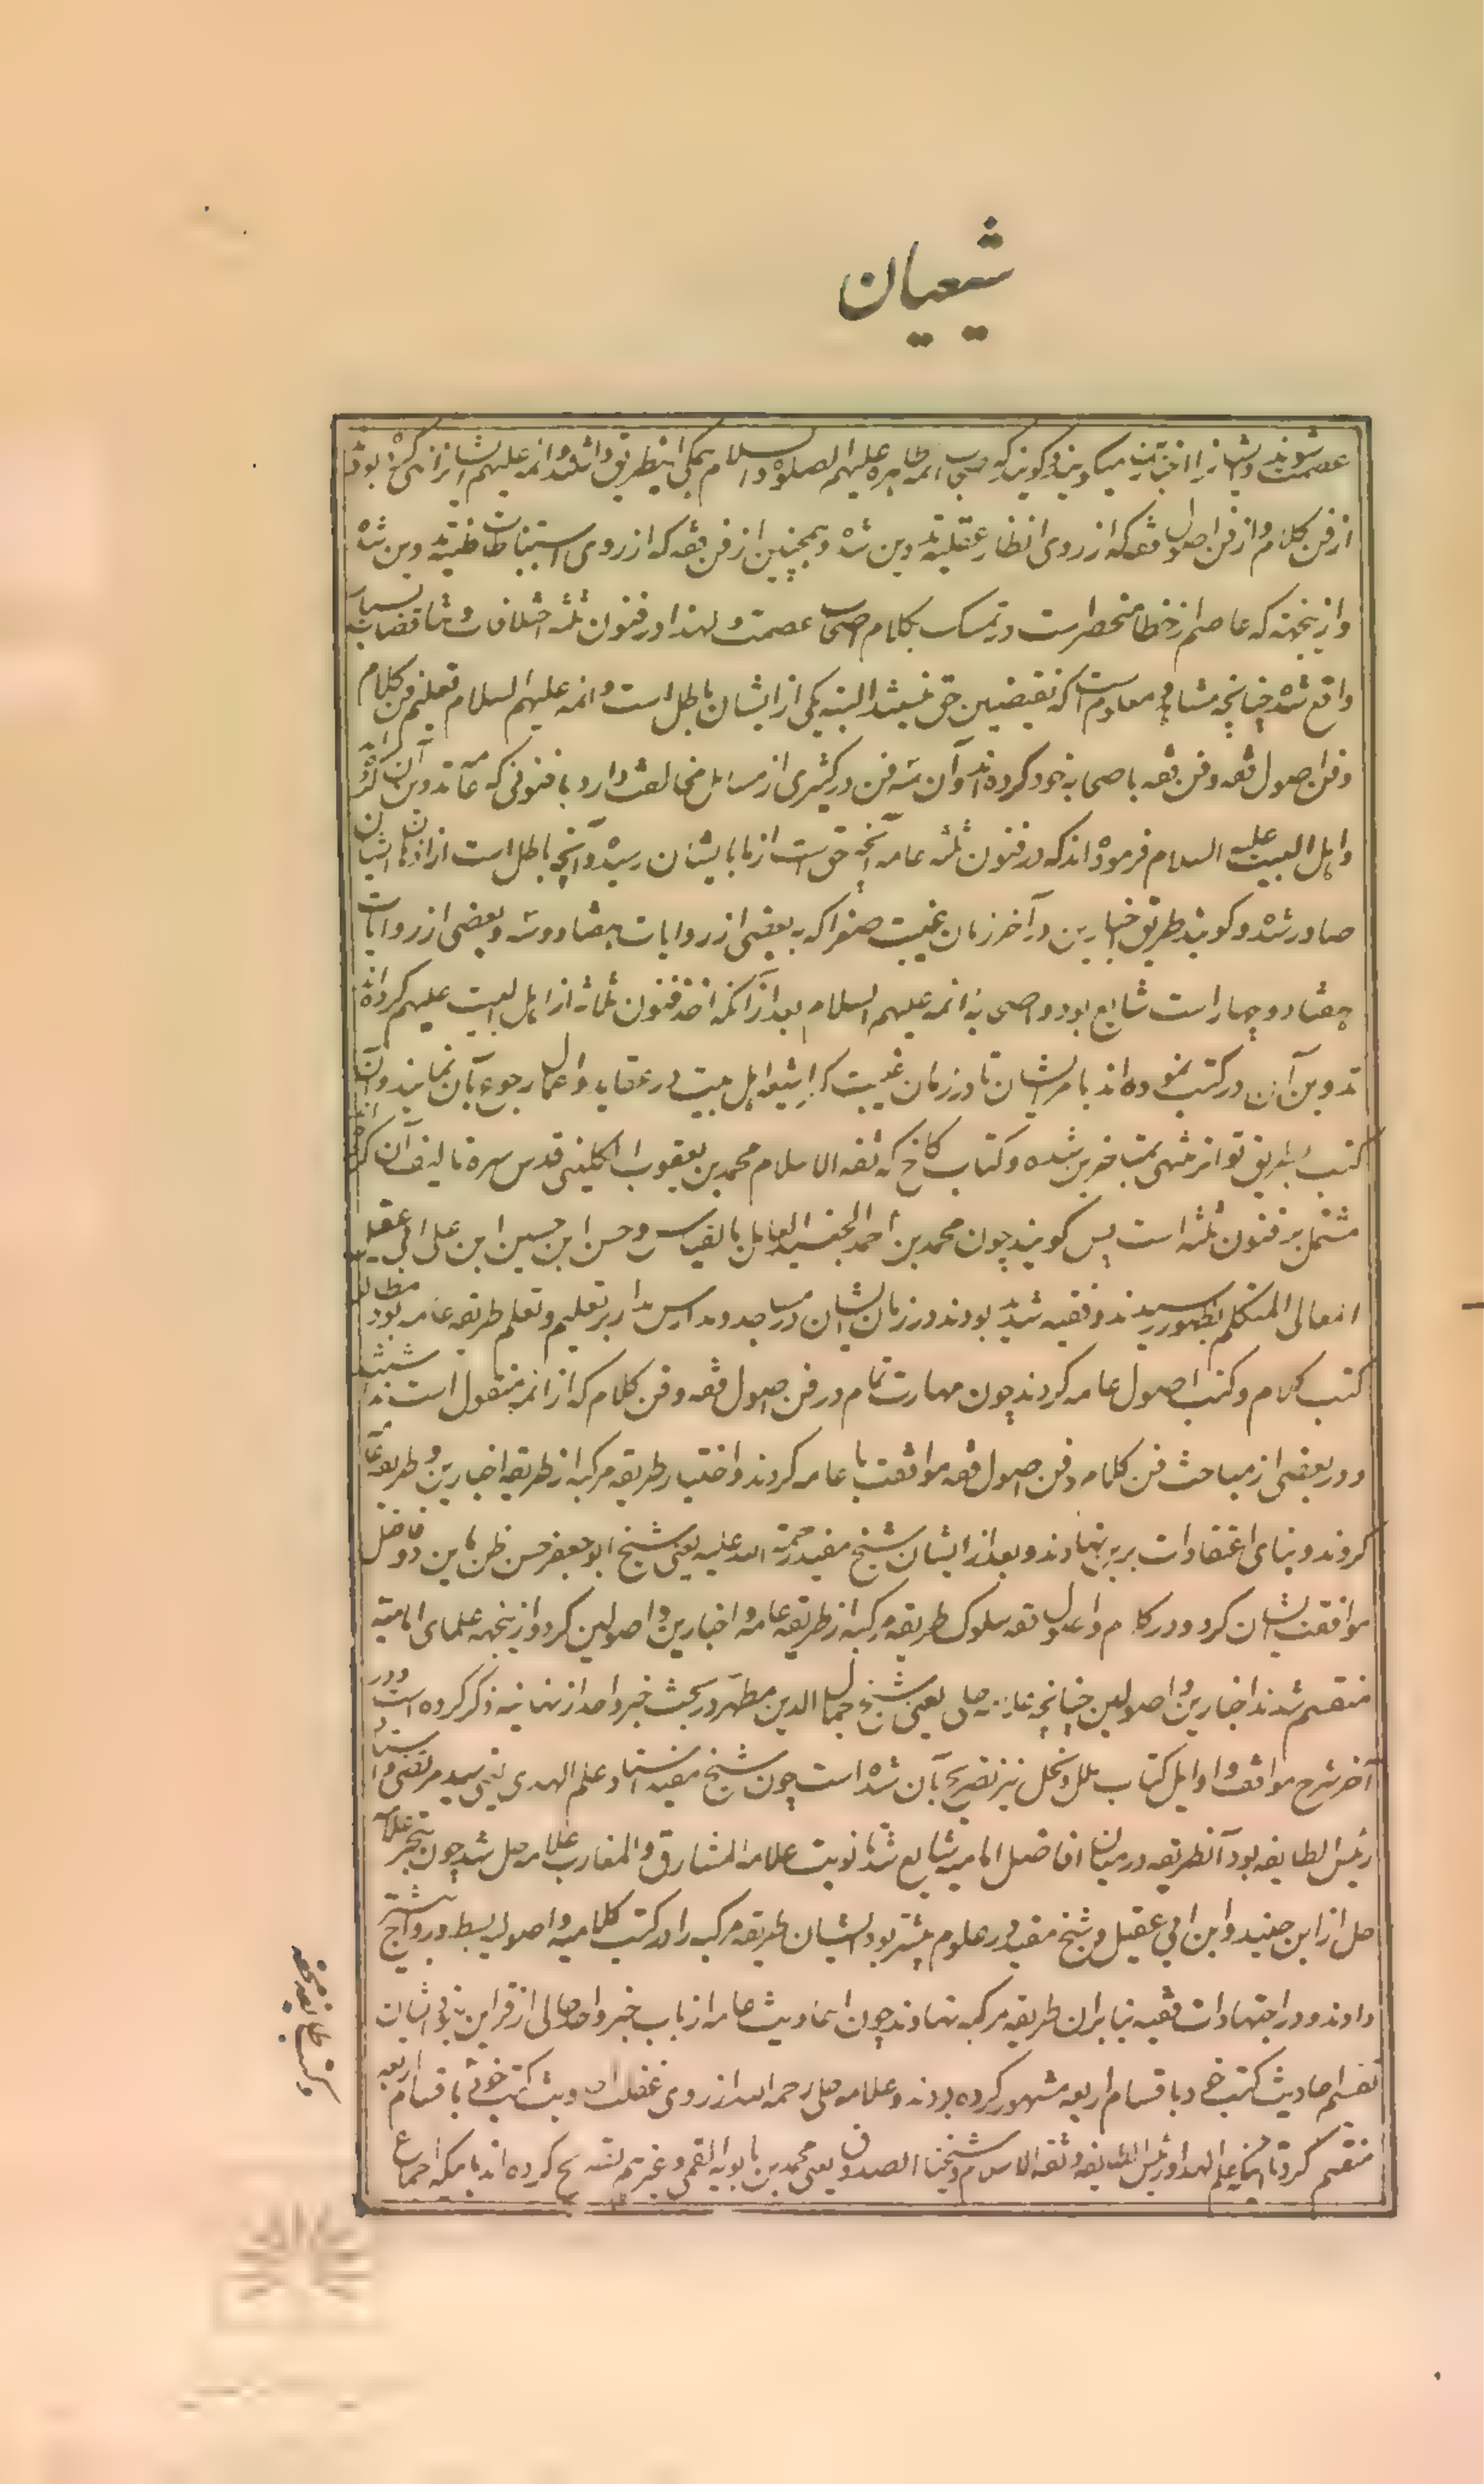 شیعیان
عصمت شوند و ایشانرا میگویند گویند که اصحاب ائمه طاهره علیهم الصلوة والسلام همگی اینطریق داشتند و ائمه علیهم ایشانرا نهی کرده بود
از فن کلام و از فن اصول فقه که از روی انظار عقلیه تدوین شده و همچنین از فن فقه که از روی استنباطات ظنیه تدوین شده
و ازینجهته که عاصم از خطا منحصراست در تمسک بکلام اصحاب عصمت و لهذا در فنون ثلثه اختلافات و تناقضات بسیار
واقع شده چنانچه مشاهد و معلوم است که نقیضین حق نمیشد البته یکی از ایشان باطل است و ائمه علیهم السلام تعلیم فن کلام
و فن اصول فقه و فن فقه باصحابه خود کرده اند و آن سه فن در کثیری از مسائل مخالفت دارد با فنونی که عامه تدوین آن کرده اند
و اهل البیت علیهم السلام فرموده اند که در فنون ثلثه عامه آنچه حق است از ما بایشان رسیده و آنچه باطل است از اذهان ایشان
صادر شده و گویند طریق اخبارین در آخر زمان غیبت صغرا که به بعضی از روایات هفتاد و سه و بعضی از روایات
هفتاد و چهار است شایع بود و اصحابه ائمه علیهم السلام بعد از آنکه اخذ فنون ثلاثه از اهل البیت علیهم کرده اند
تدوین آن در کتب نموده اند بامر ایشان تا در زمان غیبت کبرا شیعه اهل بیت در عقاید و اعمال رجوع بآن نمایند و آن
کتب بطریق تواتر منتهی بمتاخرین شده و کتاب کافی که ثقه الاسلام محمد بن یعقوب الکلینی قدس سره تالیف آن کرده اند
مشتمل بر فنون ثلثه است پس گویند چون محمد بن احمد الجنید العامل بالقیاس و حسن ابن حسین ابن علی ابی عقیل
العمانی المتکلم بظهور رسیدند و فقیه شدید بودند در زمان ایشان در مساجد و مدارس مدار بر تعلیم و تعلم طریقه عامه بود مطالعه
کتب کلام و کتب اصول عامه کردند چون مهارت تمام در فن اصول فقه و فن کلام که از ائمه منقول است نداشتند
و در بعضی از مباحث فن کلام و فن اصول فقه موافقت با عامه کردند و اختیار طریقه مرکبه از طریقه اخبارین و طریقه عامه
کردند و بنای اعتقادات بر برین نهادند و بعد از ایشان شیخ مفید رحمة الله علیه یعنی شیخ ابو جعفر حسن ظن باین دو فاضل
موافقت ایشان کرد و در کلام و اصول فقه سلوک طریقه مرکبه از طریقه عامه و اخبارین و اصولین کرد و ازینجهه علمای امامیه
منقسم شدند اخبارین و اصولین چنانچه علامه حلی یعنی شیخ جمال الدین مطهر در بحث خبر واحد از نهایه ذکر کرده است و در
آخر شرح مواقف و اوایل کتاب ملل و نحل نیز تصریح بآن شده است چون شیخ مفید استاد علم الهدی یعنی سید مرتضی و استاد
رئیس الطایفه بود آنطریقه در میان افاضل امامیه شایع شد تا نوبت علامه المشارق و المغارب علامه حلی شد چون تبحر علامه
حلی از ابن جنید و ابن ابی عقیل و شیخ مفید در علوم بیشتر بود ایشان طریقه مرکبه را در کتب کلامیه و اصولیه بسط و رواج بیشتر
دادند و در اجتهادات فقهیه بنا بر ان طریقه مرکبه نهادند چون احادیث عامه از باب خبر واحد خالی از قراین بود ایشان
تقسیم احادیث کتب خود باقسام اربعه مشهور کرده بودند و علامه حلی رحمه الله از روی غفلت احادیث کتب خود باقسام اربعه
منقسم کرد با آنکه علم الهدا و رئیس الطایفه و ثقه الاسلام و شیخنا الصدوق یعنی محمد بن بابویه القمی و غیرهم تصریح کرده اند بآنکه اجماع